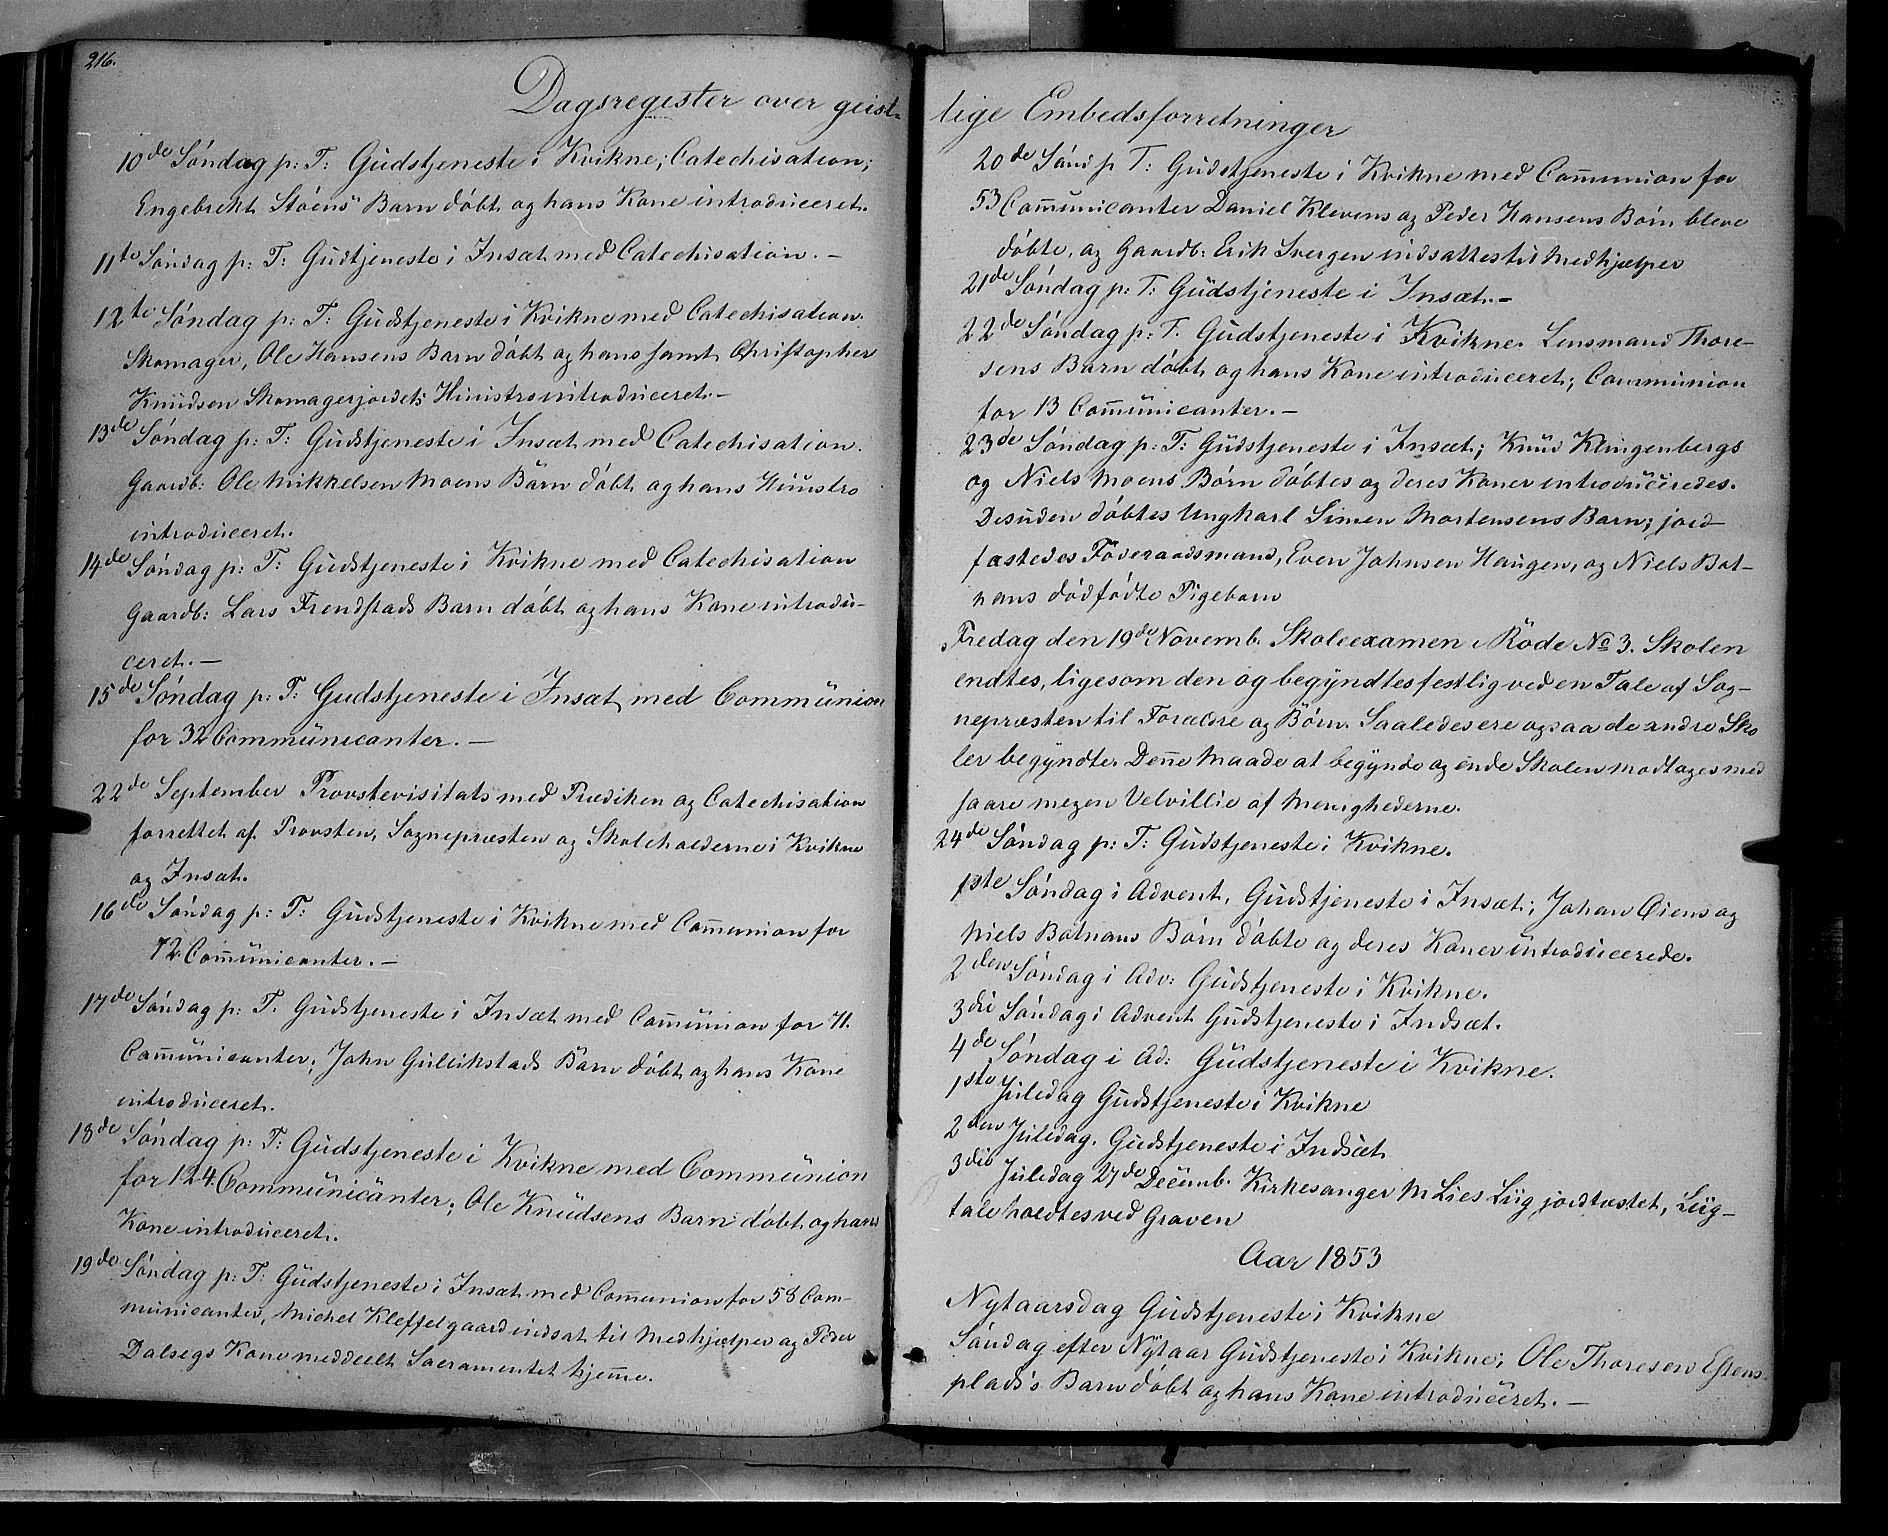 216.
Dagsregister over geist-
10de Søndag p: T: Gudstjeneste i Kvikne; Catechisation;
Engebrekt Støens Barn døbt og hans Kone introduceret.
11te Søndag p: T: Gudtjeneste i Insæt med Catechisation. –
12te Søndag p: T: Gudstjeneste i Kvikne med Catechisation.
Skomager, Ole Hansens Barn døbt og hans samt Christopher
Knudsen Skomagerjordets Hüustro introduceret. –
13de Søndag p: T: Gudstjeneste i Insæt med Catechisation.
Gaardb: Ole Mikkelsen Moens Barn døbt og hans Hüustro
introduceret.
14de Søndag p: T: Gudstjeneste i Kvikne med Catechisation
Gaardb: Lars Frendstads Barn døbt og hans Kone introdu-
ceret. –
15de Søndag p: T: Gudstjeneste i Insæt med Communion
for 32 Communicanter. –
22de September Provstevisitats med Prædiken og Catechisation
forrettet af Provsten, Sognepræsten og Skoleholderne i Kvikne
og Insæt.
16de Søndag p: T: Gudstjeneste i Kvikne med Com̄union for
72 Com̄unicanter. –
17de Søndag p: T. Gudstjeneste i Insæt med Com̄union for 71.
Com̄unicanter; John Gullikstads Barn døbt og hans Kone
introduceret.
18de Søndag p: T: Gudstjeneste i Kvikne med Communion
for 124 Communicanter; Ole Knudsens Barn døbt og hans
Kone introduceret.
19de Søndag p: T: Gudstjeneste i Insæt med Com̄union for 58 Com-
municanter, Michel Kleffelgaard indsat til Medhjælper og Peder
Dalsegs Kone meddeelt Sacramentet hjem̄e.
lige Embedsforretninger
20de Sønd p T: Gudstjeneste i Kvikne med Com̄union for
53 Com̄unicanter Daniel Klevens og Peder Hansens Børn bleve
døbte, og Gaardb: Erik Svergen indsattes til Medhjælper
21de Søndag p: T: Gudstjeneste i Insæt. –
22de Søndag p: T. Gudstjeneste i Kvikne. Lensmand Thore-
sens Barn døbt og hans Kone introduceret; Communion
for 13 Com̄unicanter. –
23de Søndag p: T: Gudstjeneste i Insæt; Knud Klingenbergs
og Niels Moens Børn døbtes og deres Koner introduceredes.
Desuden døbtes Ungkarl Simen Mortensens Barn; jord-
fæstedes Föderaadsmand, Even Johnsen Haugen, og Niels Bot-
nans dødfødte Pigebarn
Fredag den 19de Novemb. Skoleexamen i Rode No 3. Skolen
endtes, ligesom den og begyndtes festlig ved en Tale af Sog-
nepræsten til Forældre og Børn. Saaledes ere ogsaa de andre Sko
ler begyndte. Den̄e Maade at begynde og ende Skolen modtoges med
saare megen Velvillie af Menighederne.
24de Søndag p: T: Gudstjeneste i Kvikne.
1ste Søndag i Advent, Gudstjeneste i Insæt; Johan Øiens og
Niels Botnans Børn døbte og deres Koner introducerede.
2den Søndag i Adv: Gudstjeneste i Kvikne.
3die Søndag i Advent Gudstjeneste i Indsæt.
4de Søndag i Ad: Gudstjeneste i Kvikne.
1ste Juledag Gudstjeneste i Kvikne
2den Juledag. Gudstjeneste i Indsæt
3die Juledag 27de Decemb. Kirkesanger M Lies Liig jordfæstet, Liig-
tale holdtes ved Graven
Aar 1853
Nytaarsdag Gudstjeneste i Kvikne
Søndag efter Nytaar Gudstjeneste i Kvikne; Ole Thoresen Estens-
plads's Barn døbt og hans Kone introduceret. –